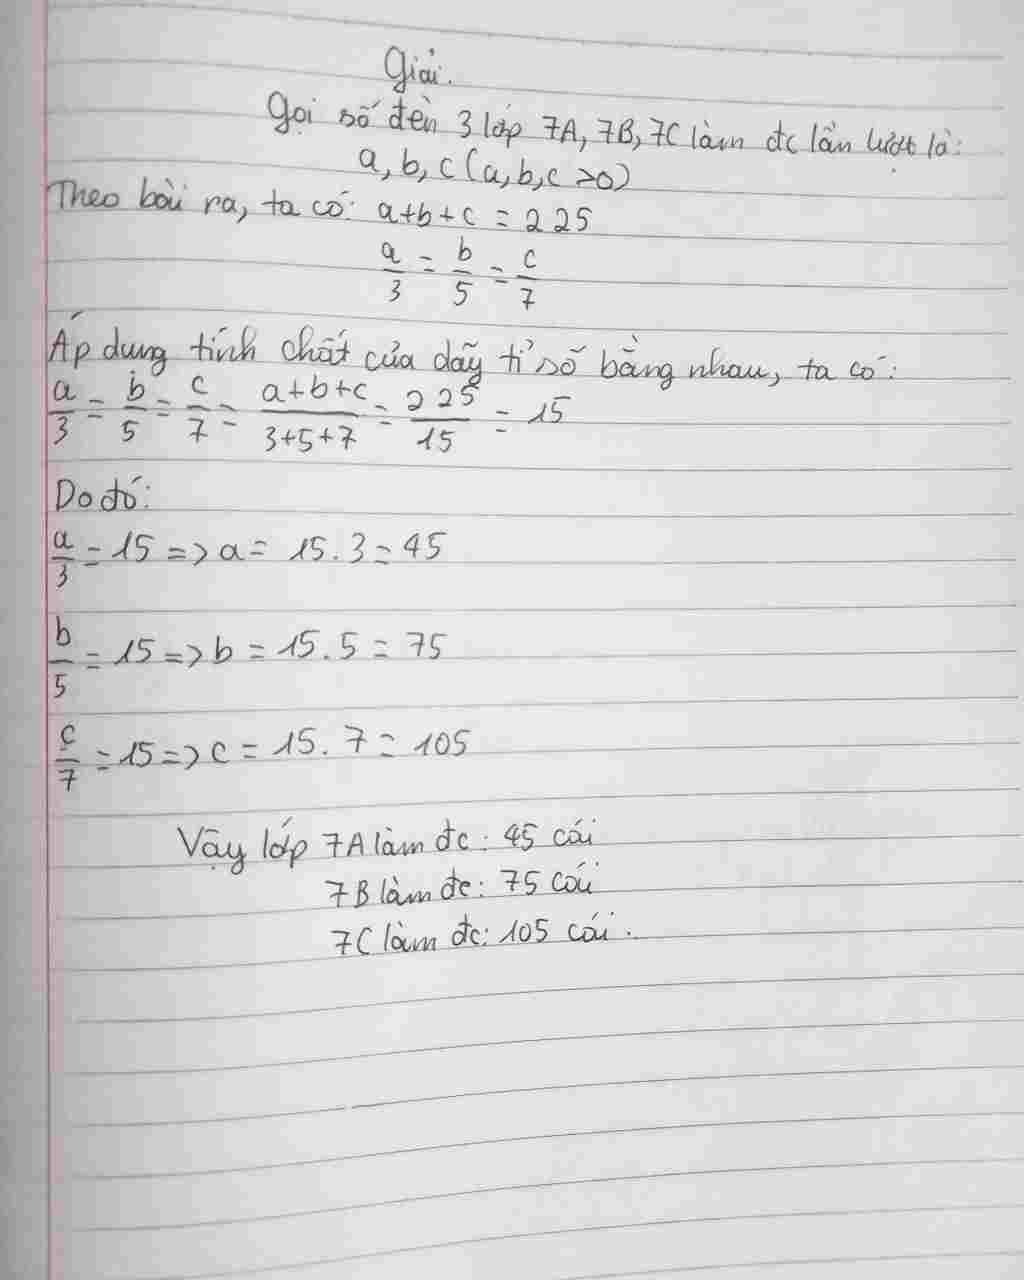 Giải.
Gọi số đèn 3 lớp 7A, 7B, 7C làm đc lần lượt là:
a, b, c (a, b, c >0)
Theo bài ra, ta có: a+b+c = 225
a/3 = b/5 = c/7
Áp dung tính chất của dãy tỉ số bằng nhau, ta có:
a/3 = b/5 = c/7 = a+b+c/3+5+7 = 225/15 = 15
Do đó:
a/3 = 15 => a = 15.3 = 45
b/5 = 15 => b = 15.5 = 75
c/7 = 15 => c = 15.7 = 105
Vậy lớp 7A làm đc: 45 cái
7B làm đc: 75 cái
7C làm đc: 105 cái.